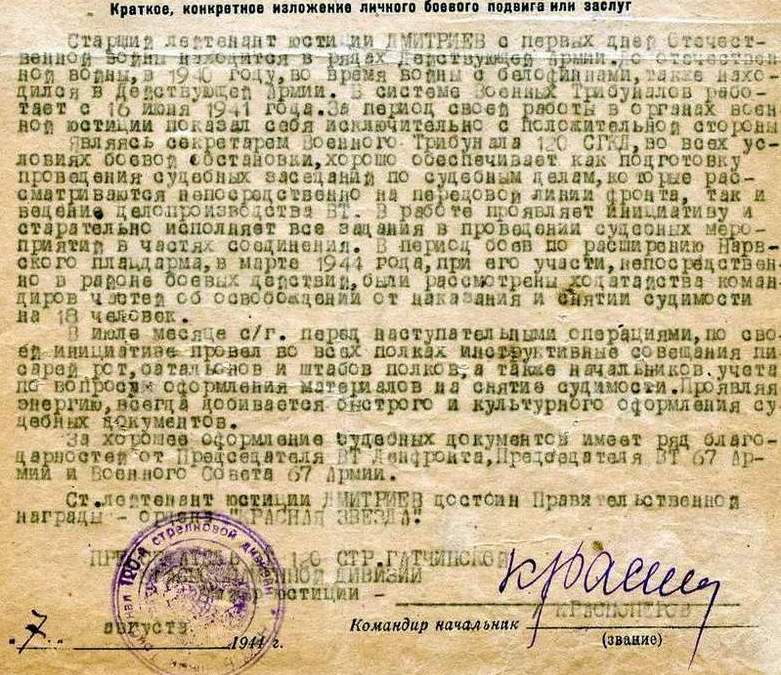 Краткое, конкретное изложение личного боевого подвига или заслуг
Старший лейтенант юстиции ДМИТРИЕВ с первых дней Отечест-
венной войны находится в рядах Действующей Армии. До отечествен
ной войны, в 1940 году, во время войны с белофиннами, также нахо-
дился в Действующей Армии. В системе Военных Трибуналов рабо-
тает с 16 июня 1941 года. За период своей работы в органах воен
ной юстиции показал себя исключительно с положительной стороны
Являясь секретарем Военного Трибунала 120 СГКД, во всех ус-
ловиях боевой обстановки, хорошо обеспечивает как подготовку
проведения судебных заседаний по судебным делам, которые рас-
сматриваются непосредственно на передовой линии фронта, так и
ведение делопроизводства ВТ. В работе проявляет инициативу и
старательно исполняет все задания в проведении судебных меро-
приятий в частях соединения. В период боев по расширению Нарв-
ского плацдарма, в марте 1944 года, при его участи, непосредствен-
но в районе боевых действий, были рассмотрены ходатайства коман-
диров частей об освобождении от наказания и снятии судимости
на 18 человек.
В июле месяце с/г. перед наступательными операциями, по сво-
ей инициативе провел во всех полках инструктивные совещания пи
сарей рот, батальонов и штабов полков, а также начальников учета
по вопросу оформления материалов на снятие судимости. Проявляя
энергию, всегда добивается быстрого и культурного оформления су
дебных документов.
За хорошее оформление судебных документов имеет ряд благо-
дарностей от Председателя ВТ Ленфронта, Председателя ВТ 67 Ар-
мии и Военного Совета 67 Армии.
Ст. лейтенант юстиции ДМИТРИЕВ достоин Правительственной
награды - ордена "КРАСНАЯ ЗВЕЗДА".
ПРЕДСЕДАТЕЛЬ 120 СТР. ГАТЧИНСКОЙ
ДИВИЗИИ
юстиции -
120-й стрелковой дивизии
"7" августа 1944 г.
Командир начальник
(звание)